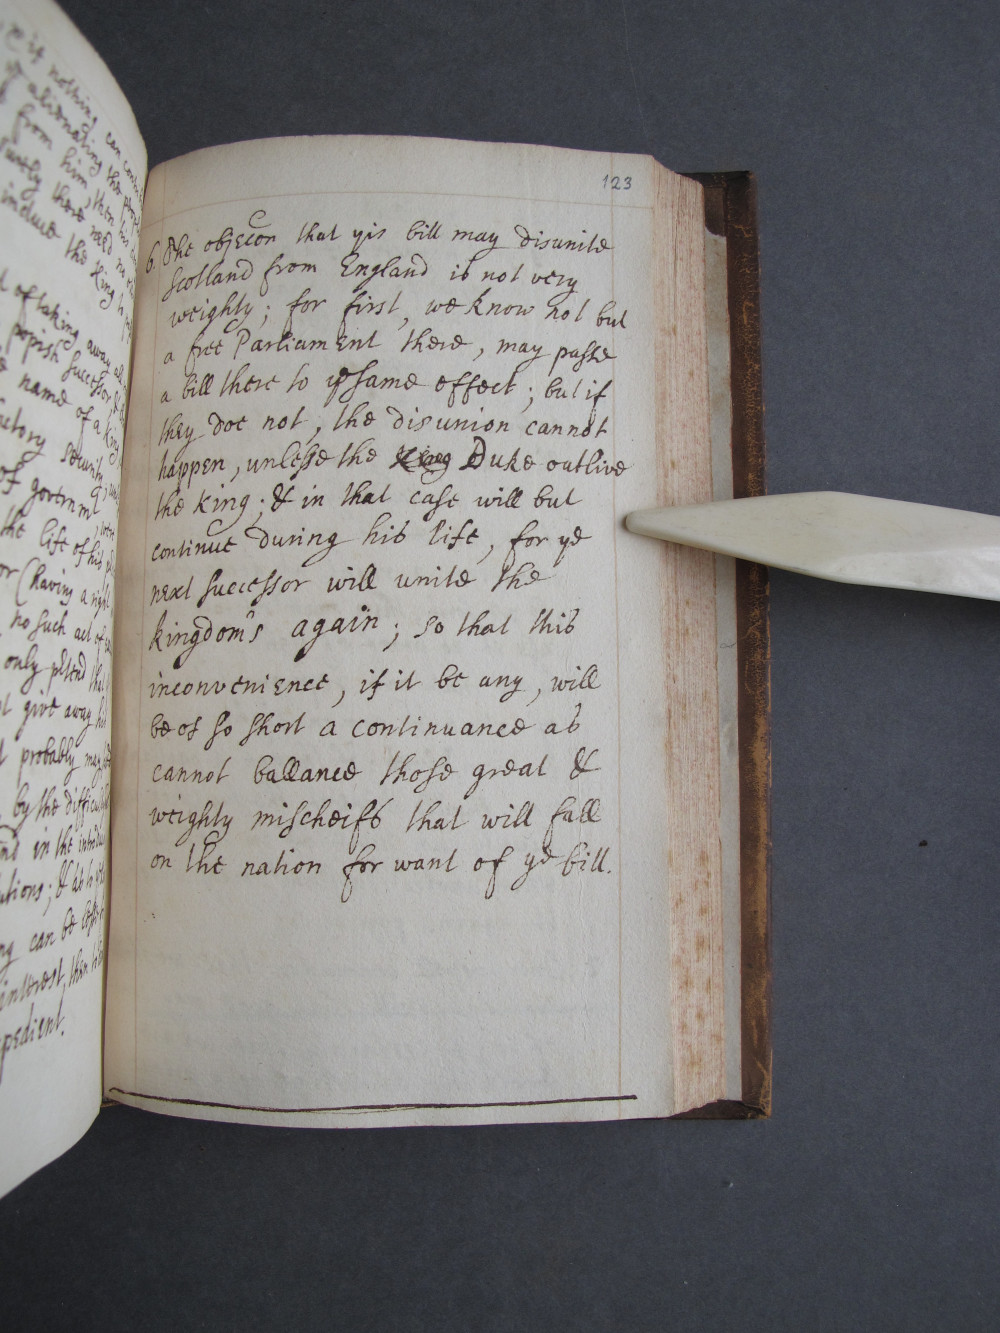 123
6. The objeccon that yis bill may disunite
Scotland from England is not very
weighty; for first, we know not but
a free Parliament there, may passe
a bill there to ye same effect; but if
they doe not, the disunion cannot
happen, unlesse the King Duke outlive
the King; & in that case will but
continue during his life, for ye
next successor will unite the
kingdom's again; so that this
inconvenience, if it be any, will
be of so short a continuance as
cannot ballance those great &
weighty mischeifs that will fall
on the nation for want of ye bill.
if nothing can
alienating the
from him, then his
surely there need no
induce the King to
of taking away all
popish successor, &
name of a King
security,
of governmt,
the life of his
or (having a right
no such act of
only ptend that
give away his
probably may
by the difficul
and in the introduc
lutions; & as to
ng can be
interest, then
pedient.